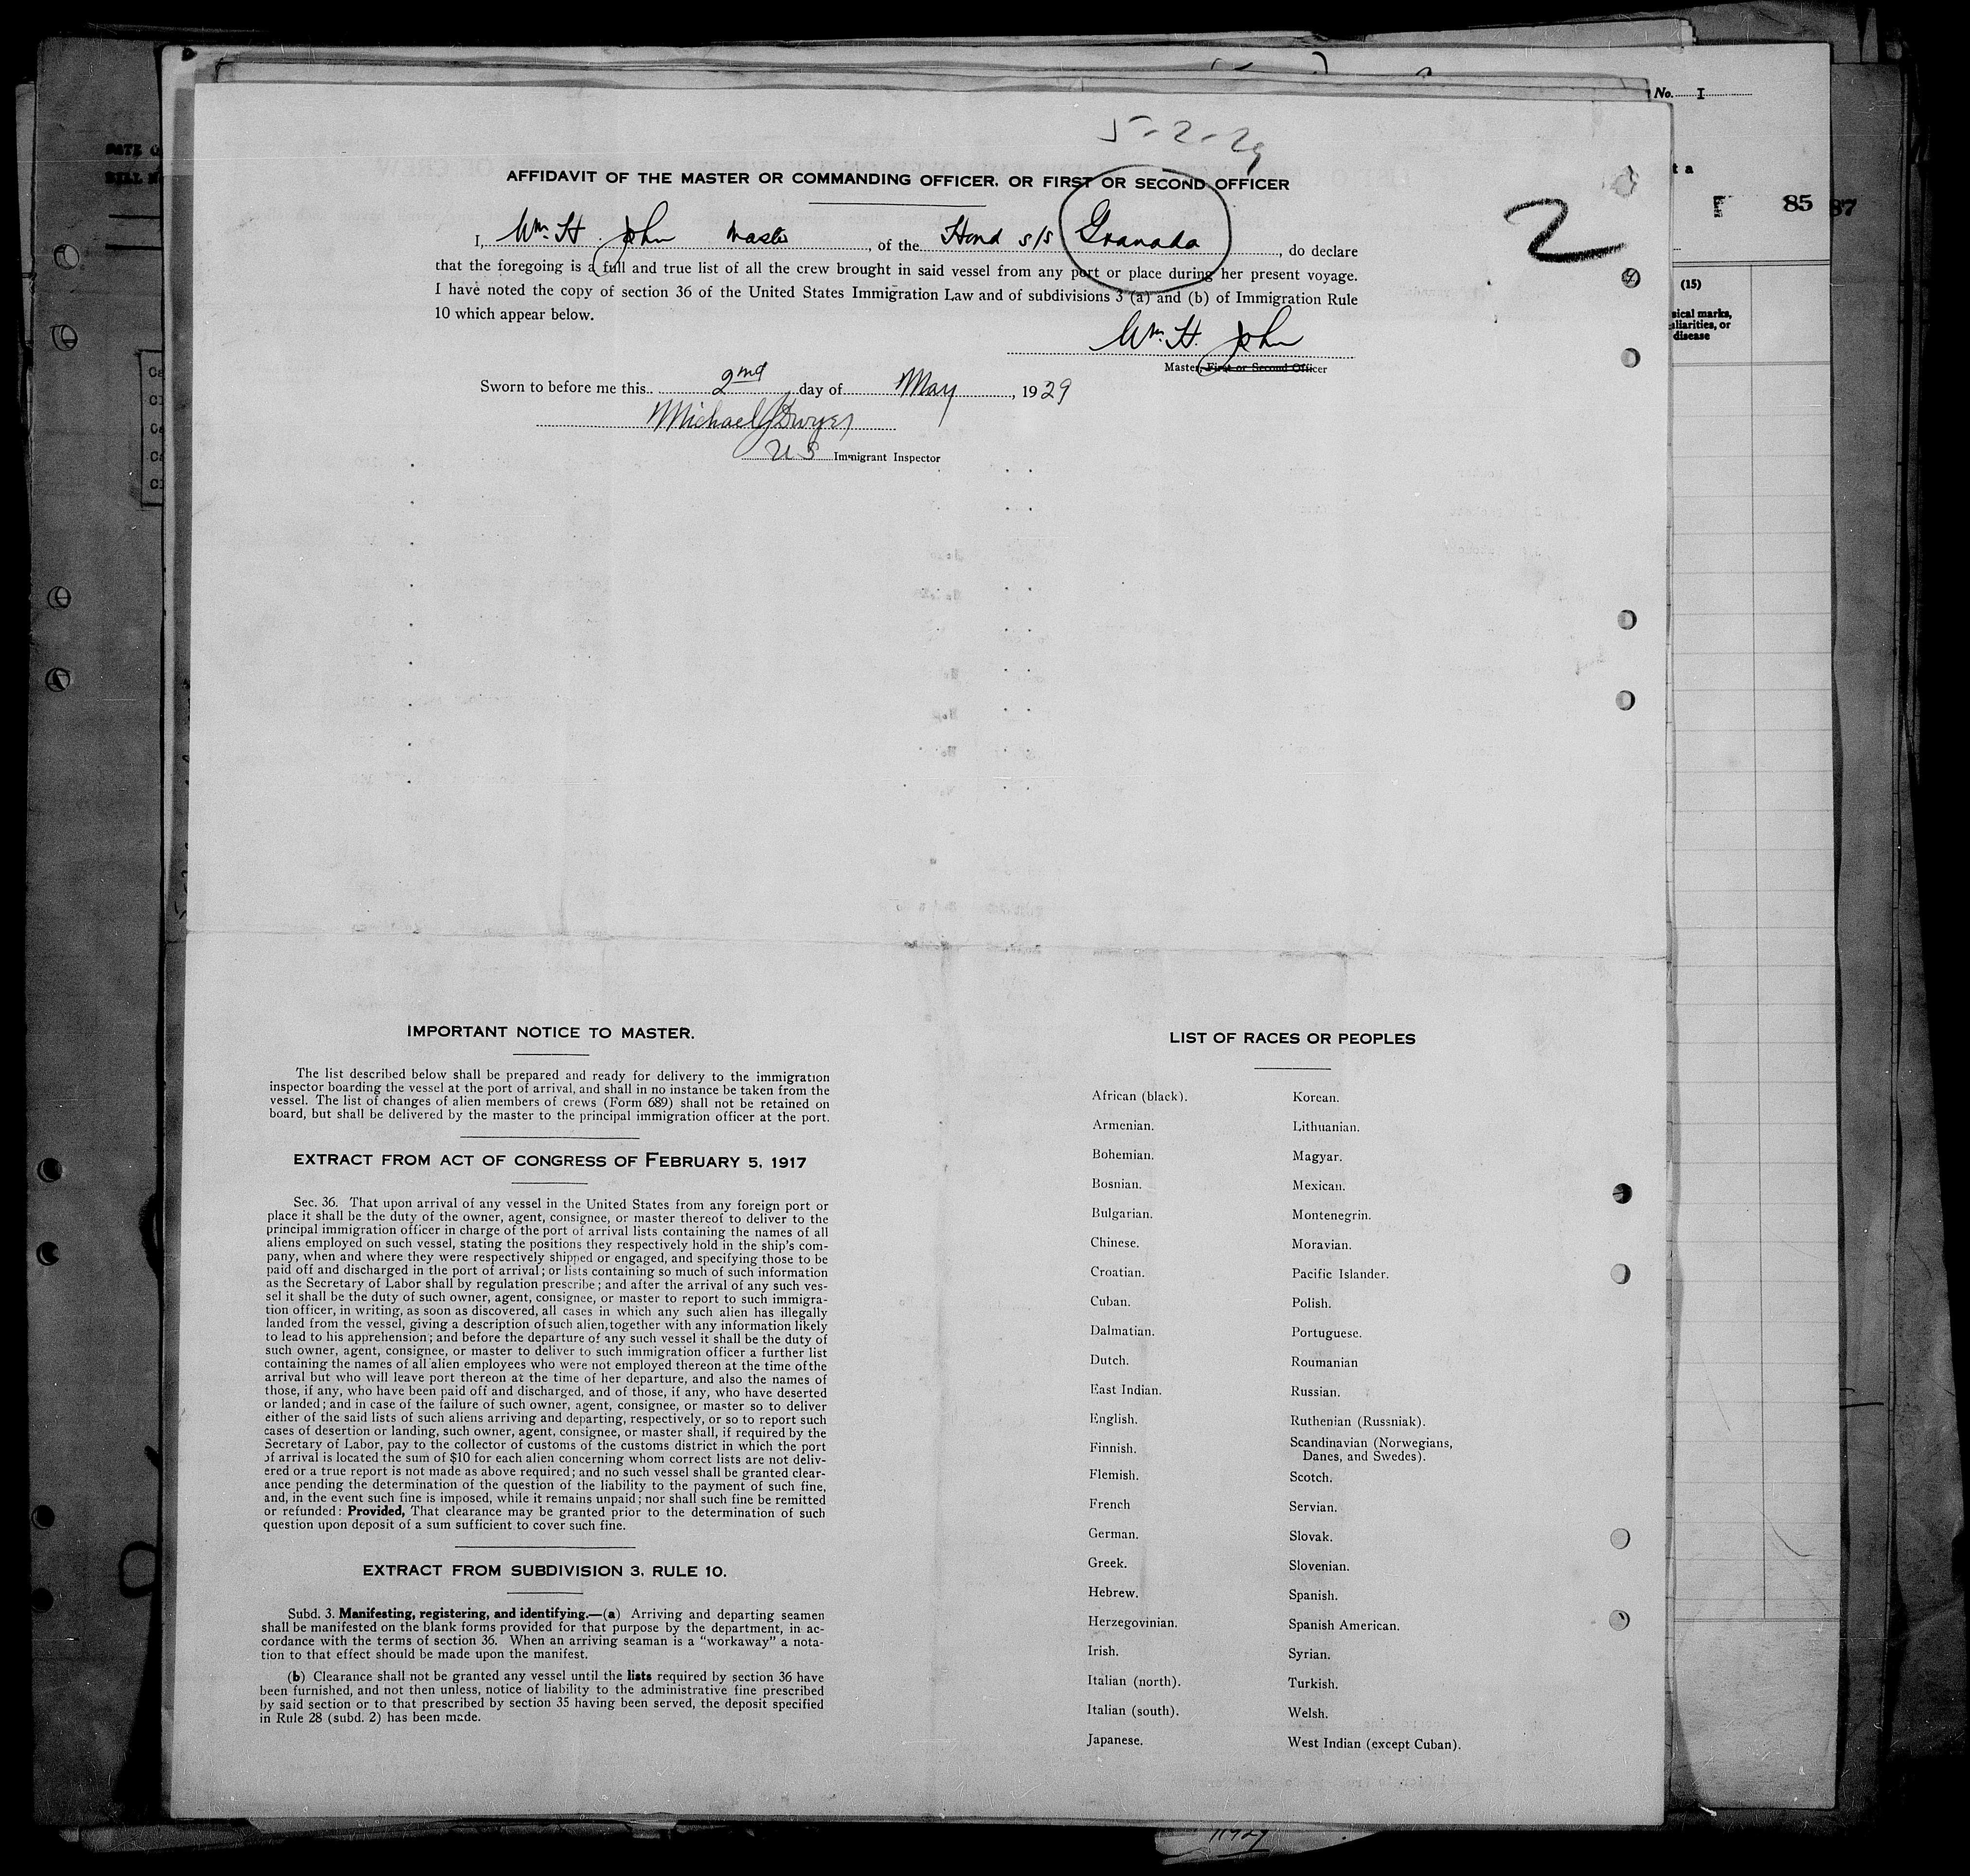 No. I
5-2-29
AFFIDAVIT OF THE MASTER OR COMMANDING OFFICER, OR FIRST OR SECOND OFFICER
2
I, Wm. H. John Master, of the Hond s/s Granada, do declare
that the foregoing is a full and true list of all the crew brought in said vessel from any port or place during her present voyage.
I have noted the copy of section 36 of the United States Immigration Law and of subdivisions 3 (a) and (b) of Immigration Rule
10 which appear below.
Wm. H. John
Master, First or Second Officer
Sworn to before me this 2nd day of May, 1929
Michael J Dwyer
US Immigrant Inspector
85
87
(15)
sical marks,
liarities, or
disease
IMPORTANT NOTICE TO MASTER.
The list described below shall be prepared and ready for delivery to the immigration
inspector boarding the vessel at the port of arrival, and shall in no instance be taken from the
vessel. The list of changes of alien members of crews (Form 689) shall not be retained on
board, but shall be delivered by the master to the principal immigration officer at the port.
EXTRACT FROM ACT OF CONGRESS OF FEBRUARY 5, 1917
Sec. 36. That upon arrival of any vessel in the United States from any foreign port or
place it shall be the duty of the owner, agent, consignee, or master thereof to deliver to the
principal immigration officer in charge of the port of arrival lists containing the names of all
aliens employed on such vessel, stating the positions they respectively hold in the ship's com-
pany, when and where they were respectively shipped or engaged, and specifying those to be
paid off and discharged in the port of arrival; or lists containing so much of such information
as the Secretary of Labor shall by regulation prescribe; and after the arrival of any such ves-
sel it shall be the duty of such owner, agent, consignee, or master to report to such immigra-
tion officer, in writing, as soon as discovered, all cases in which any such alien has illegally
landed from the vessel, giving a description of such alien, together with any information likely
to lead to his apprehension; and before the departure of any such vessel it shall be the duty of
such owner, agent, consignee, or master to deliver to such immigration officer a further list
containing the names of all alien employees who were not employed thereon at the time of the
arrival but who will leave port thereon at the time of her departure, and also the names of
those, if any, who have been paid off and discharged, and of those, if any, who have deserted
or landed; and in case of the failure of such owner, agent, consignee, or master so to deliver
either of the said lists of such aliens arriving and departing, respectively, or so to report such
cases of desertion or landing, such owner, agent, consignee, or master shall, if required by the
Secretary of Labor, pay to the collector of customs of the customs district in which the port
of arrival is located the sum of $10 for each alien concerning whom correct lists are not deliv-
ered or a true report is not made as above required; and no such vessel shall be granted clear-
ance pending the determination of the question of the liability to the payment of such fine,
and, in the event such fine is imposed, while it remains unpaid; nor shall such fine be remitted
or refunded: Provided, That clearance may be granted prior to the determination of such
question upon deposit of a sum sufficient to cover such fine.
EXTRACT FROM SUBDIVISION 3, RULE 10.
Subd. 3. Manifesting, registering, and identifying.—(a) Arriving and departing seamen
shall be manifested on the blank forms provided for that purpose by the department, in ac-
cordance with the terms of section 36. When an arriving seaman is a "workaway" a nota-
tion to that effect should be made upon the manifest.
(b) Clearance shall not be granted any vessel until the lists required by section 36 have
been furnished, and not then unless, notice of liability to the administrative fine prescribed
by said section or to that prescribed by section 35 having been served, the deposit specified
in Rule 28 (subd. 2) has been made.
LIST OF RACES OR PEOPLES
African (black).
Armenian.
Bohemian.
Bosnian.
Bulgarian.
Chinese.
Croatian.
Cuban.
Dalmatian.
Dutch.
East Indian.
English.
Finnish.
Flemish.
French
German.
Greek.
Hebrew.
Herzegovinian.
Irish.
Italian (north).
Italian (south).
Japanese.
Korean.
Lithuanian.
Magyar.
Mexican.
Montenegrin.
Moravian.
Pacific Islander.
Polish.
Portuguese.
Roumanian
Russian.
Ruthenian (Russniak).
Scandinavian (Norwegians,
Danes, and Swedes).
Scotch.
Servian.
Slovak.
Slovenian.
Spanish.
Spanish American.
Syrian.
Turkish.
Welsh.
West Indian (except Cuban).